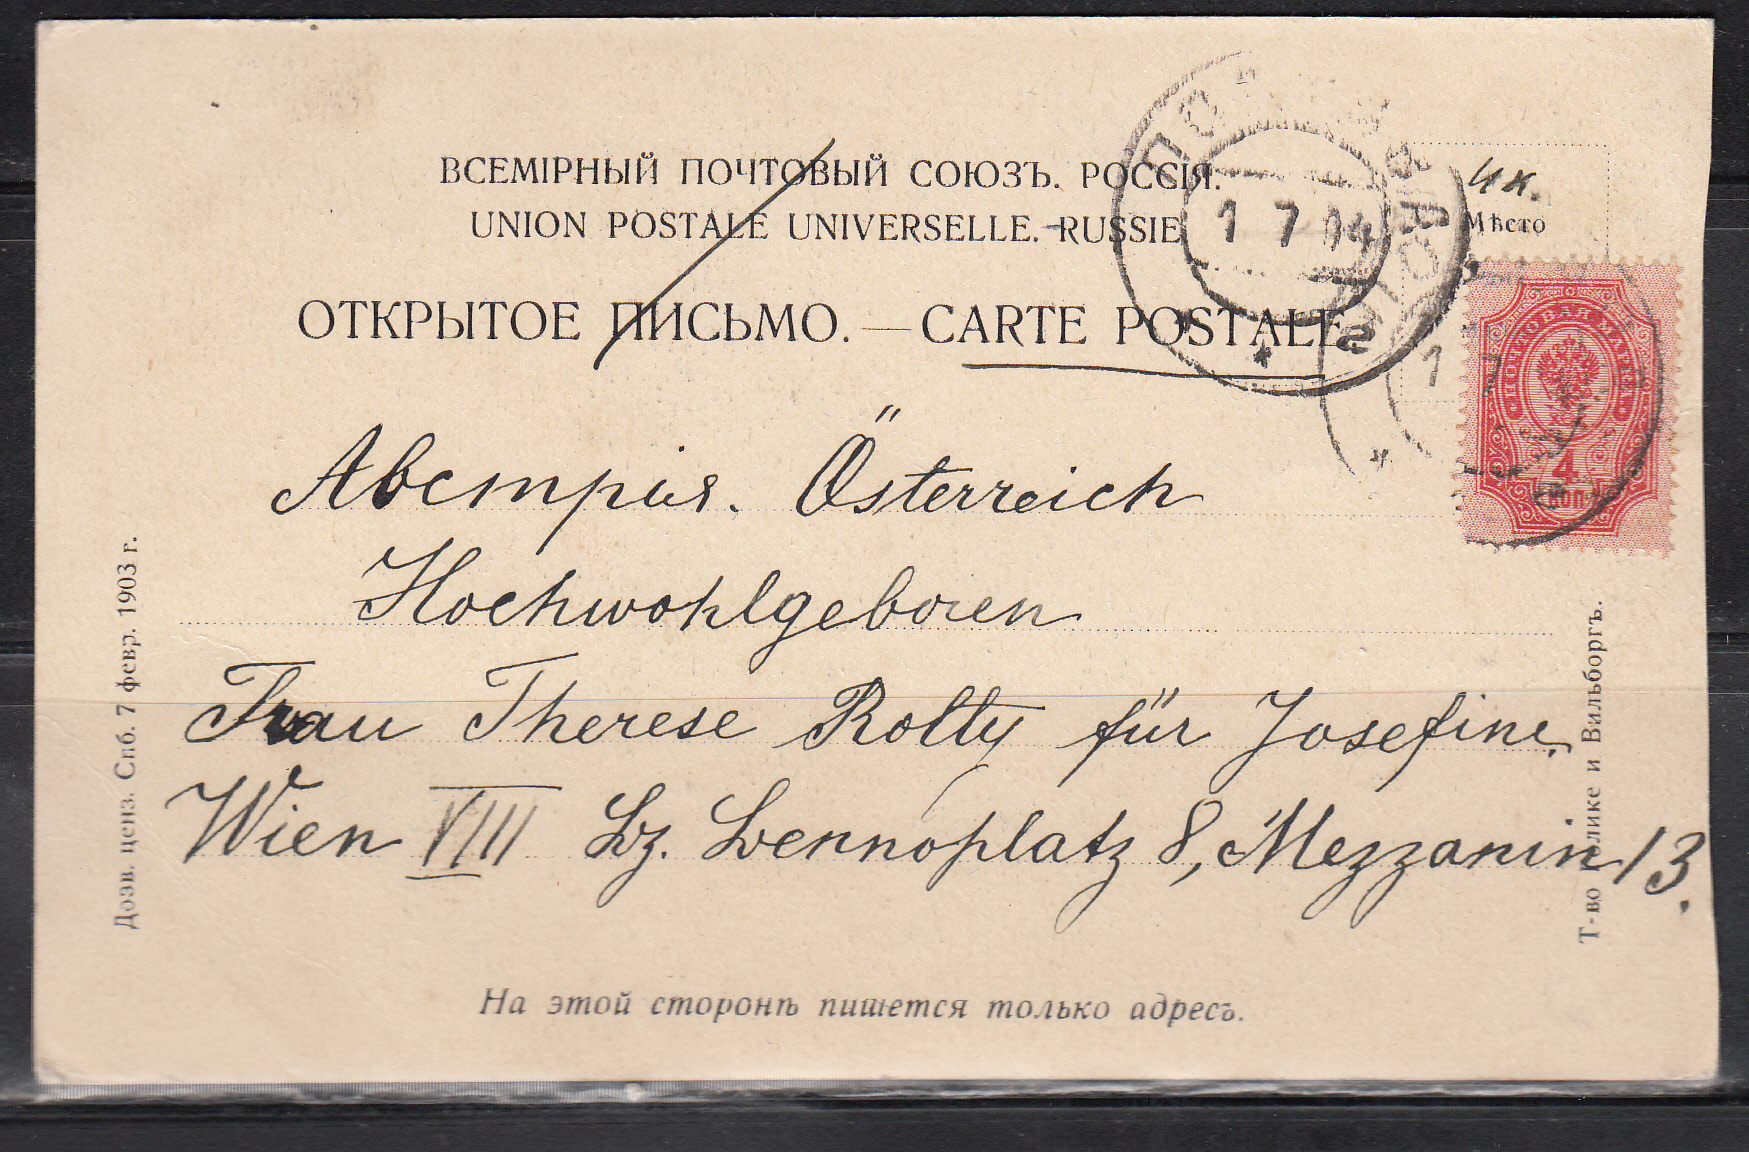 ВСЕМІРНЫЙ ПОЧТОВЫЙ СОЮЗЪ. РОССІЯ.
UNION POSTALE UNIVERSELLE.-RUSSIE
ОТКРЫТОЕ ПИСЬМО. — CARTE POSTALE
4 к.
Мѣсто
1 7 04
1
ПОЧТОВАЯ МАРКА
4
КОП.
Австрія. Österreich
Hochwohlgeboren
Frau Therese Rolly für Josefine.
Wien VIII Lz. Lennoplatz 8, Mezzanin 13.
На этой сторонѣ пишется только адресъ.
Дозв. ценз. Спб. 7 февр. 1903 г.
Т-во Голике и Вильборгъ.